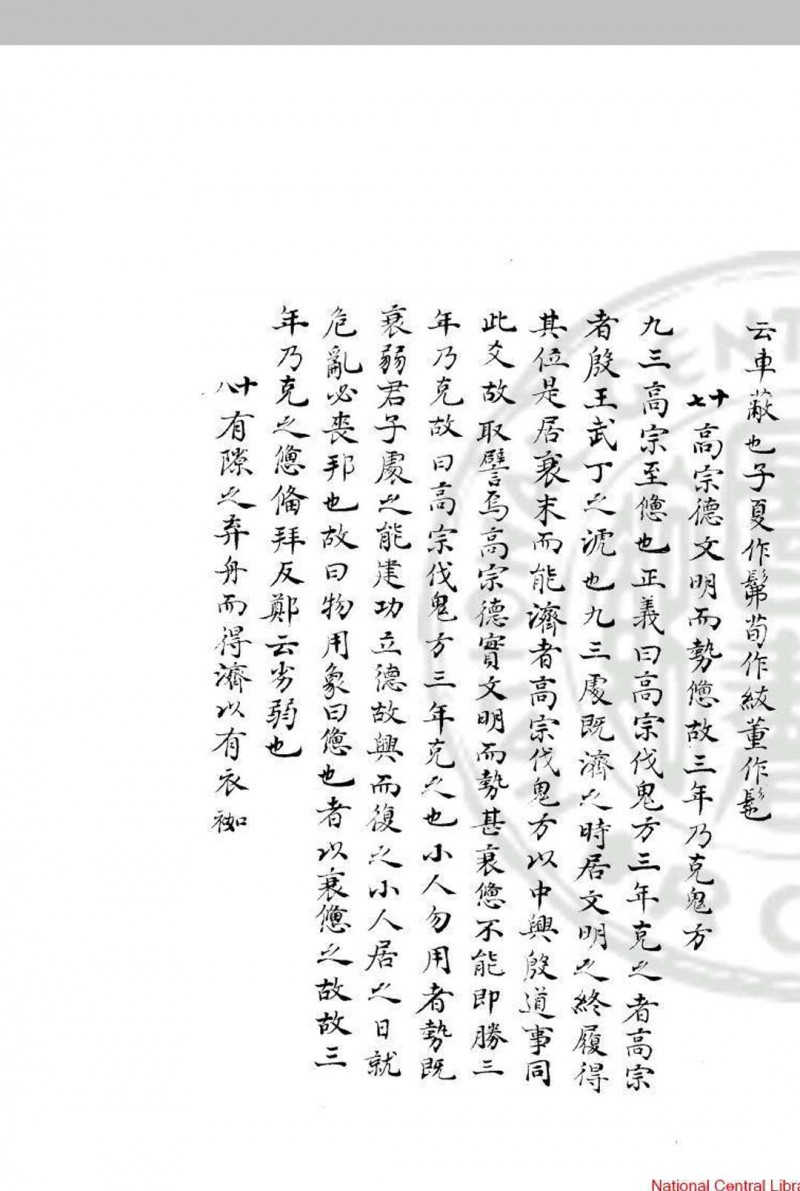 云車蔽也子夏作髴荀作紱董作髢
十七高宗德文明而勢憊故三年乃克鬼方
九三高宗至憊也正義曰高宗伐鬼方三年克之者高宗
者殷王武丁之號也九三處既濟之時居文明之終履得
其位是居衰末而能濟者高宗伐鬼方以中興殷道事同
此爻故取譬焉高宗德實文明而勢甚衰憊不能即勝三
年乃克故曰高宗伐鬼方三年克之也小人勿用者勢既
衰弱君子處之能建功立德故興而復之小人居之日就
危亂必喪邦也故曰物用象曰憊也者以衰憊之故故三
年乃克之憊備拜反鄭云劣弱也
十八有隙之弃舟而得濟以有衣袽
National Central Libra